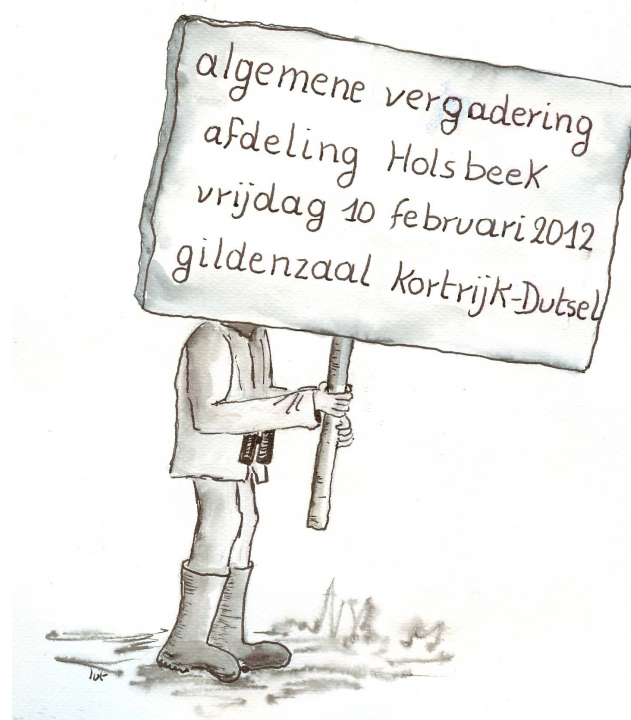 algemene vergadering
afdeling Holsbeek
vrijdag 10 februari 2012
gildenzaal Kortrijk-Dutsel
lut